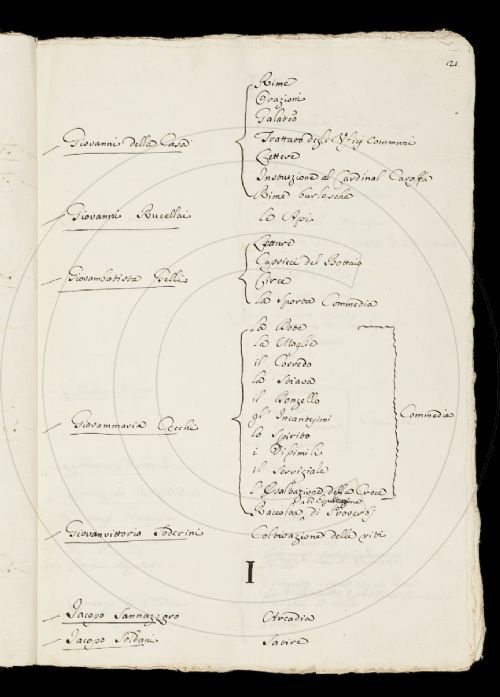 121.
Rime
Orazioni
Galateo
Giovanni della Casa
Trattato degl' Ufizj Communi
Lettere
Instruzione al Cardinal Caraffa
Rime burlesche
Giovanni Rucellai le Api
Letture
Capricci del Bottaio
Giovambatista Gelli
Circe
la Sporta Commedia
la Dote
la Moglie
il Corredo
la Stiava
il Donzello
Giovammaria Cecchi
gl' Incantesimi
Commedie
lo Spirito
i Dissimili
il Serviziale
l' Esaltazione della Croce
Raccolta di Proverbj
Giovanvittorio Soderini Coltivazione delle viti
I
Jacopo Sannazzaro Arcadia
Jacopo Soldani Satire